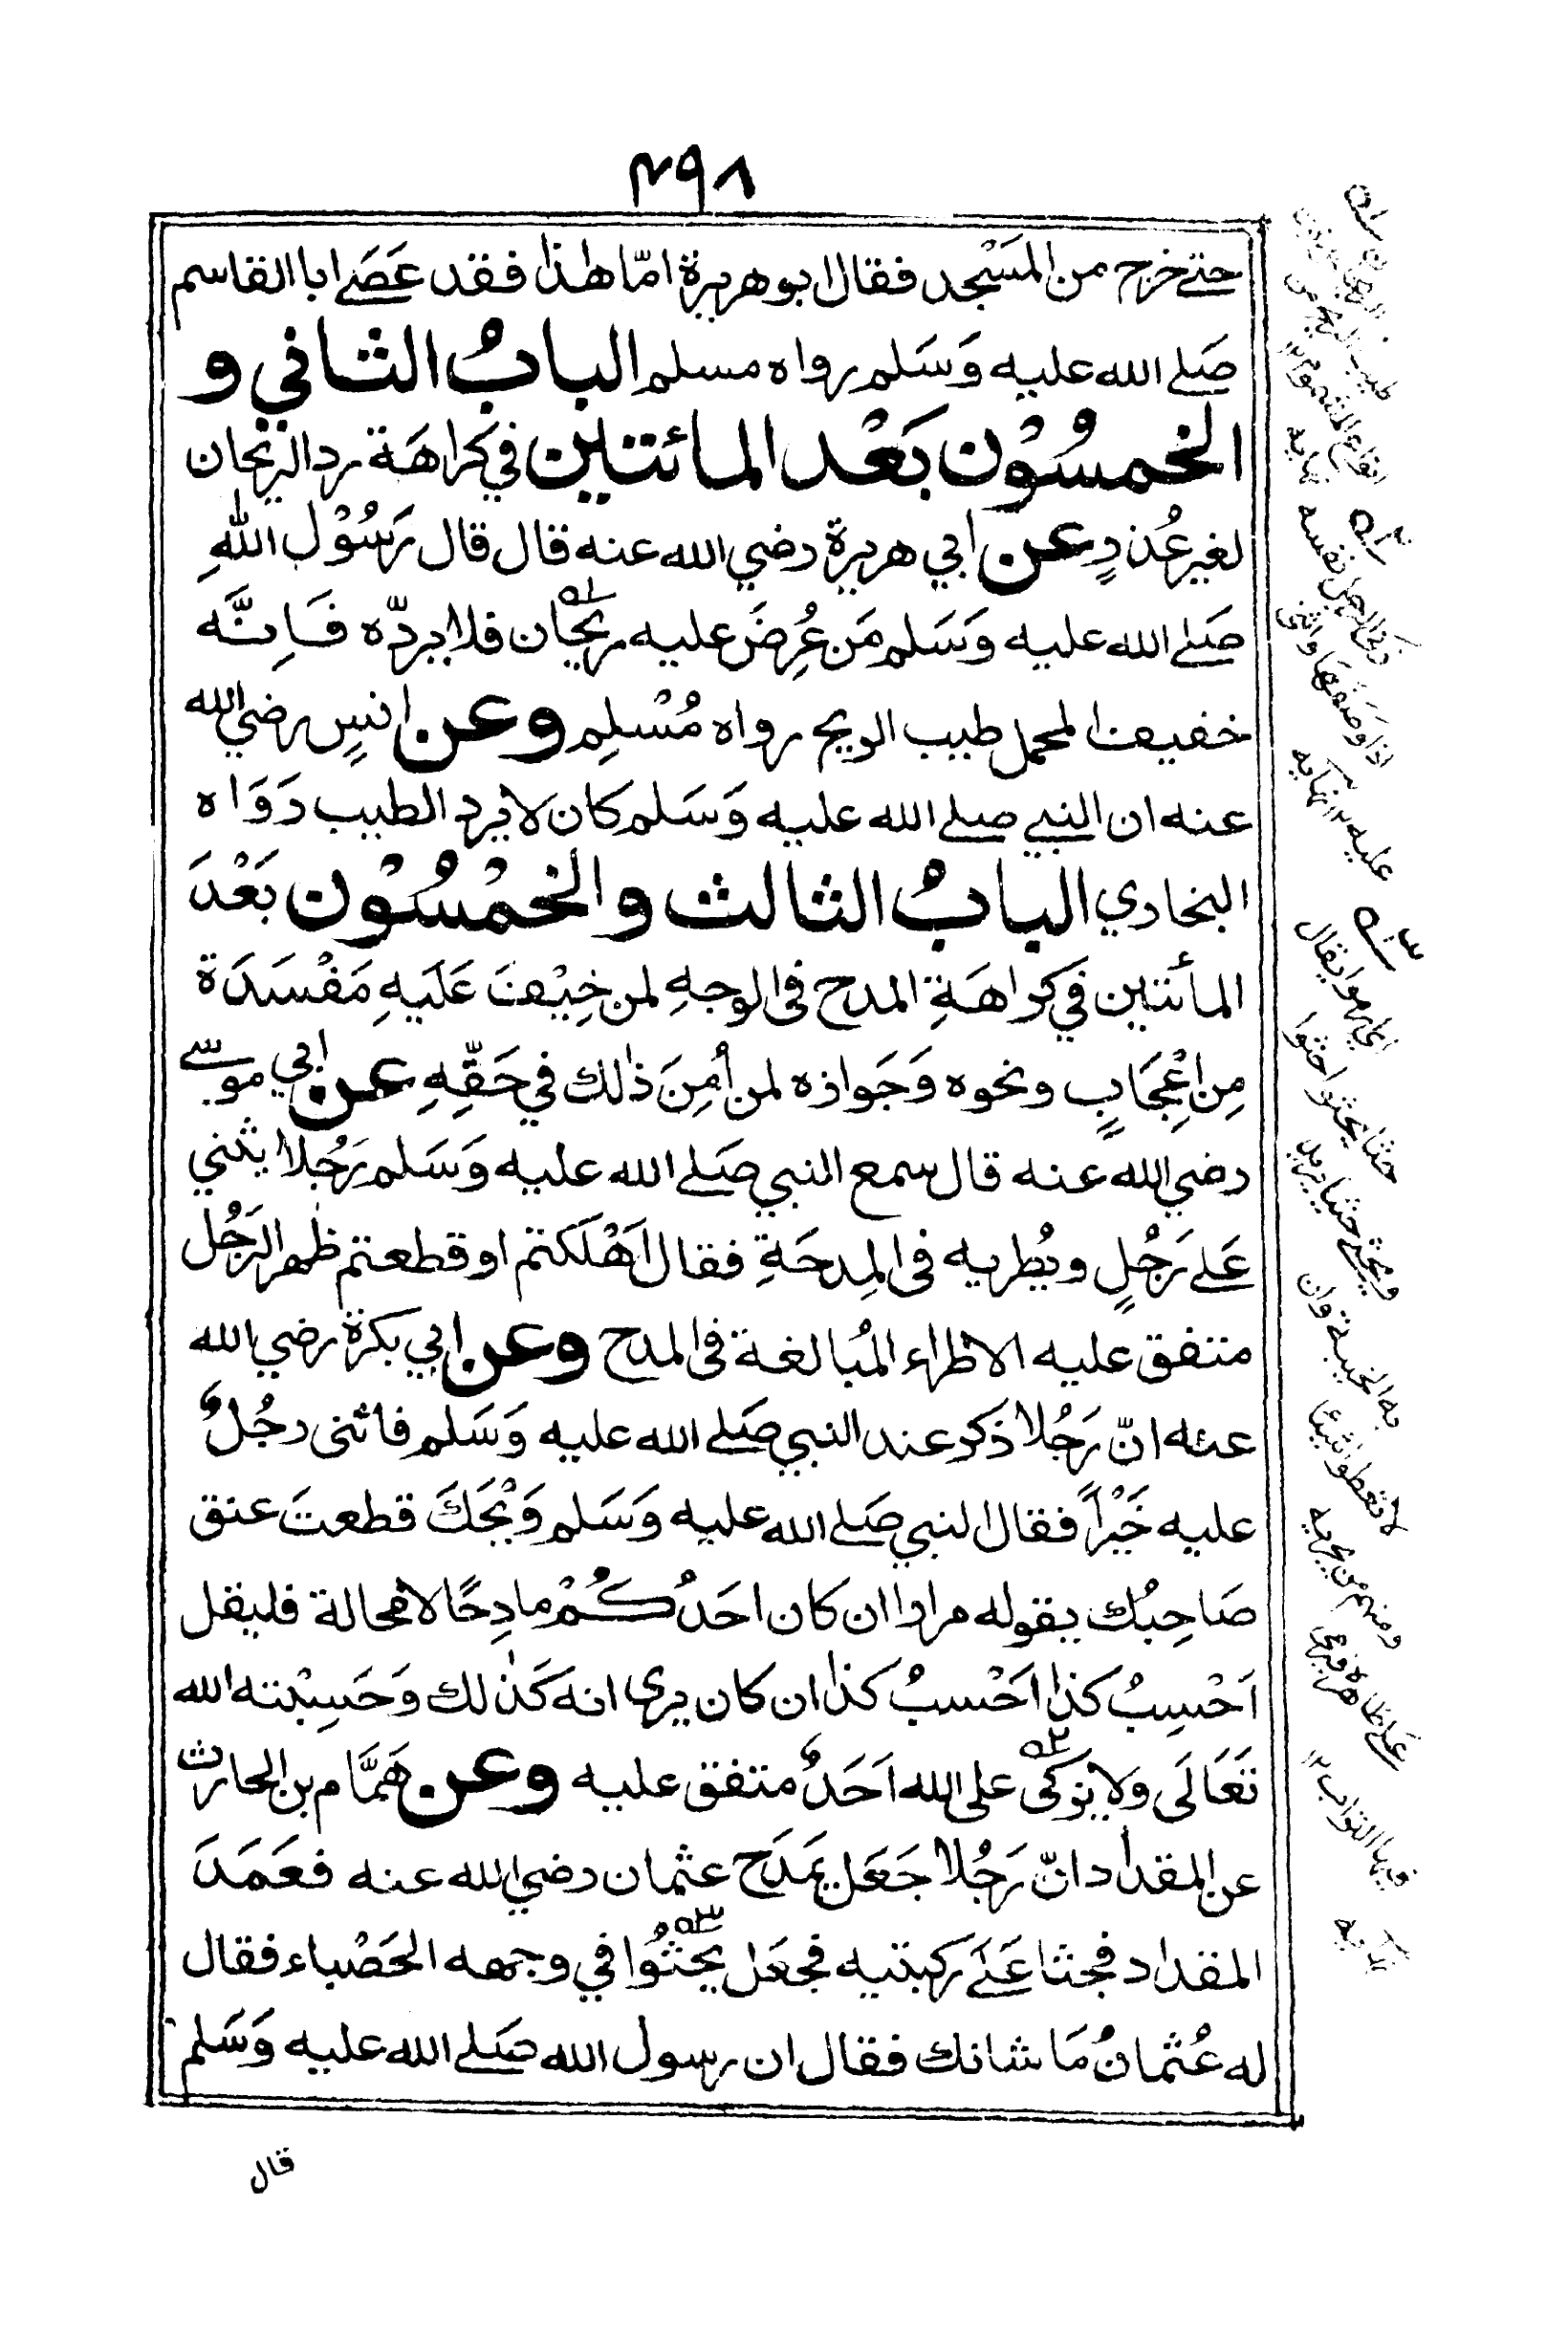 ٤٩٨
حتے خرج من المَسْجد فقال ابو هريرة امّا هٰذا فقد عَصَے ابا القاسم
صَلے الله عليه وَسَلم رواه مسلم البابُ الثاني و
الخمسُوْن بَعْد المائتين في كراهَة رد الريحان
لغير عُذرٍ عن ابي هريرة رضي الله عنه قال قال رَسُوْل اللهِ
صَلے الله عليه وَسَلم مَن عُرِضَ عليه ريحان فلا يردّه فَاِنَّه
خفيف المحمل طيب الريح رواه مُسْلِم وعن انسٍ رضي الله
عنه ان النبي صلے الله عليه وَسَلم كان لا يرد الطيب رَوَاه
البخاري البابُ الثالث والخمْسُوْن بَعْدَ
المأتين في كراهَةِ المدح فی الوجهِ لمن خِيْفَ عَلَيهِ مَفْسَدَة
مِن اِعْجَابٍ ونحوه وَجَوازه لمن اُمِنَ ذٰلك في حَقِّهِ عن ابي موسے
رضي الله عنه قال سمع النبي صَلے الله عليه وَسَلم رَجُلا يثني
عَلے رَجُلٍ ويُطريه فی المِدحَةِ فقال اَهْلَكتم او قطعتم ظهر الرَجُل
متفق عليه الاطراء المُبالغة فی المدح وعن ابي بكرة رضي الله
عنه انّ رَجُلا ذَكر عند النبي صَلے الله عليه وَسَلم فاثنی رجُلٌ
عليه خَيْراً فقال النبي صَلے الله عليه وَسَلم وَيْحَكَ قطعتَ عنق
صَاحِبُك يقوله مرارا ان كان احَدُكُمْ مادِحًا لا محالة فليقل
اَحْسِبُ كذا اَحْسبُ كذا ان كان يری انه كَذٰلك وَحَسِيْبته الله
تَعَالَی وَلا يزكی علی الله اَحَدٌ متفق عليه وعن هَمَّام بن الحارث
عن المقداد انّ رَجُلا جَعَل يَمدَح عثمان رضي الله عنه فعَمَدَ
المقداد فجثا عَلَے ركبتيه فجعَل يحْثوُا في وجهه الحَصْباء فقال
له عُثمانُ مَا شانك فقال ان رسول الله صَلے الله عليه وَسَلم
قال
ذكی الرجل نفسه
اذا وصفها واثنی
عليه ١٢ نهايه
ای هو ايقال
حثا يحثوا حثوا
ويحثے حثيا يريد
به الخيبة وان
لا تعطوا شيئا
ومنهم من يجريه
علے ظاهره فيرمی
فيها التراب ١٢